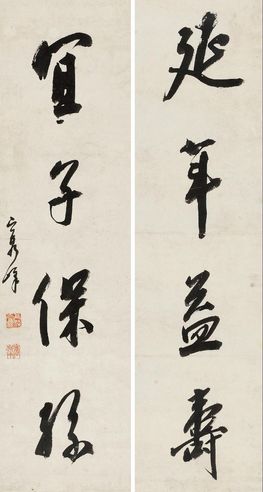 延年益壽
宜子保孫